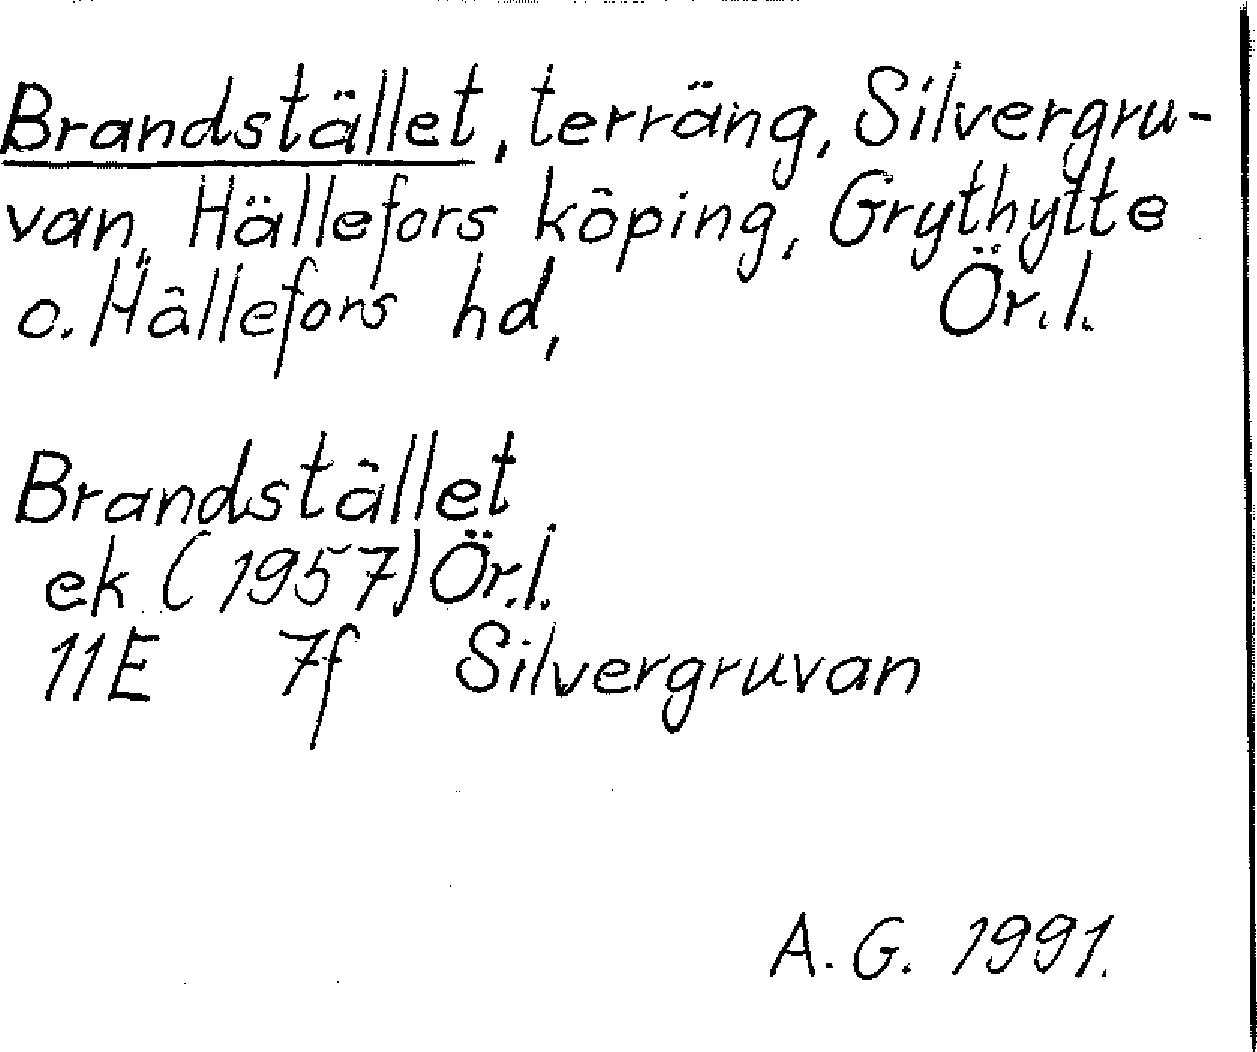 Brandstället, terräng, Silvergru-
van, Hällefors köping, Grythytte
o. Hällefors hd, Ör.l.
Brandstället
ek (1957) Ör.l.
11E 7f Silvergruvan
A.G. 1991.